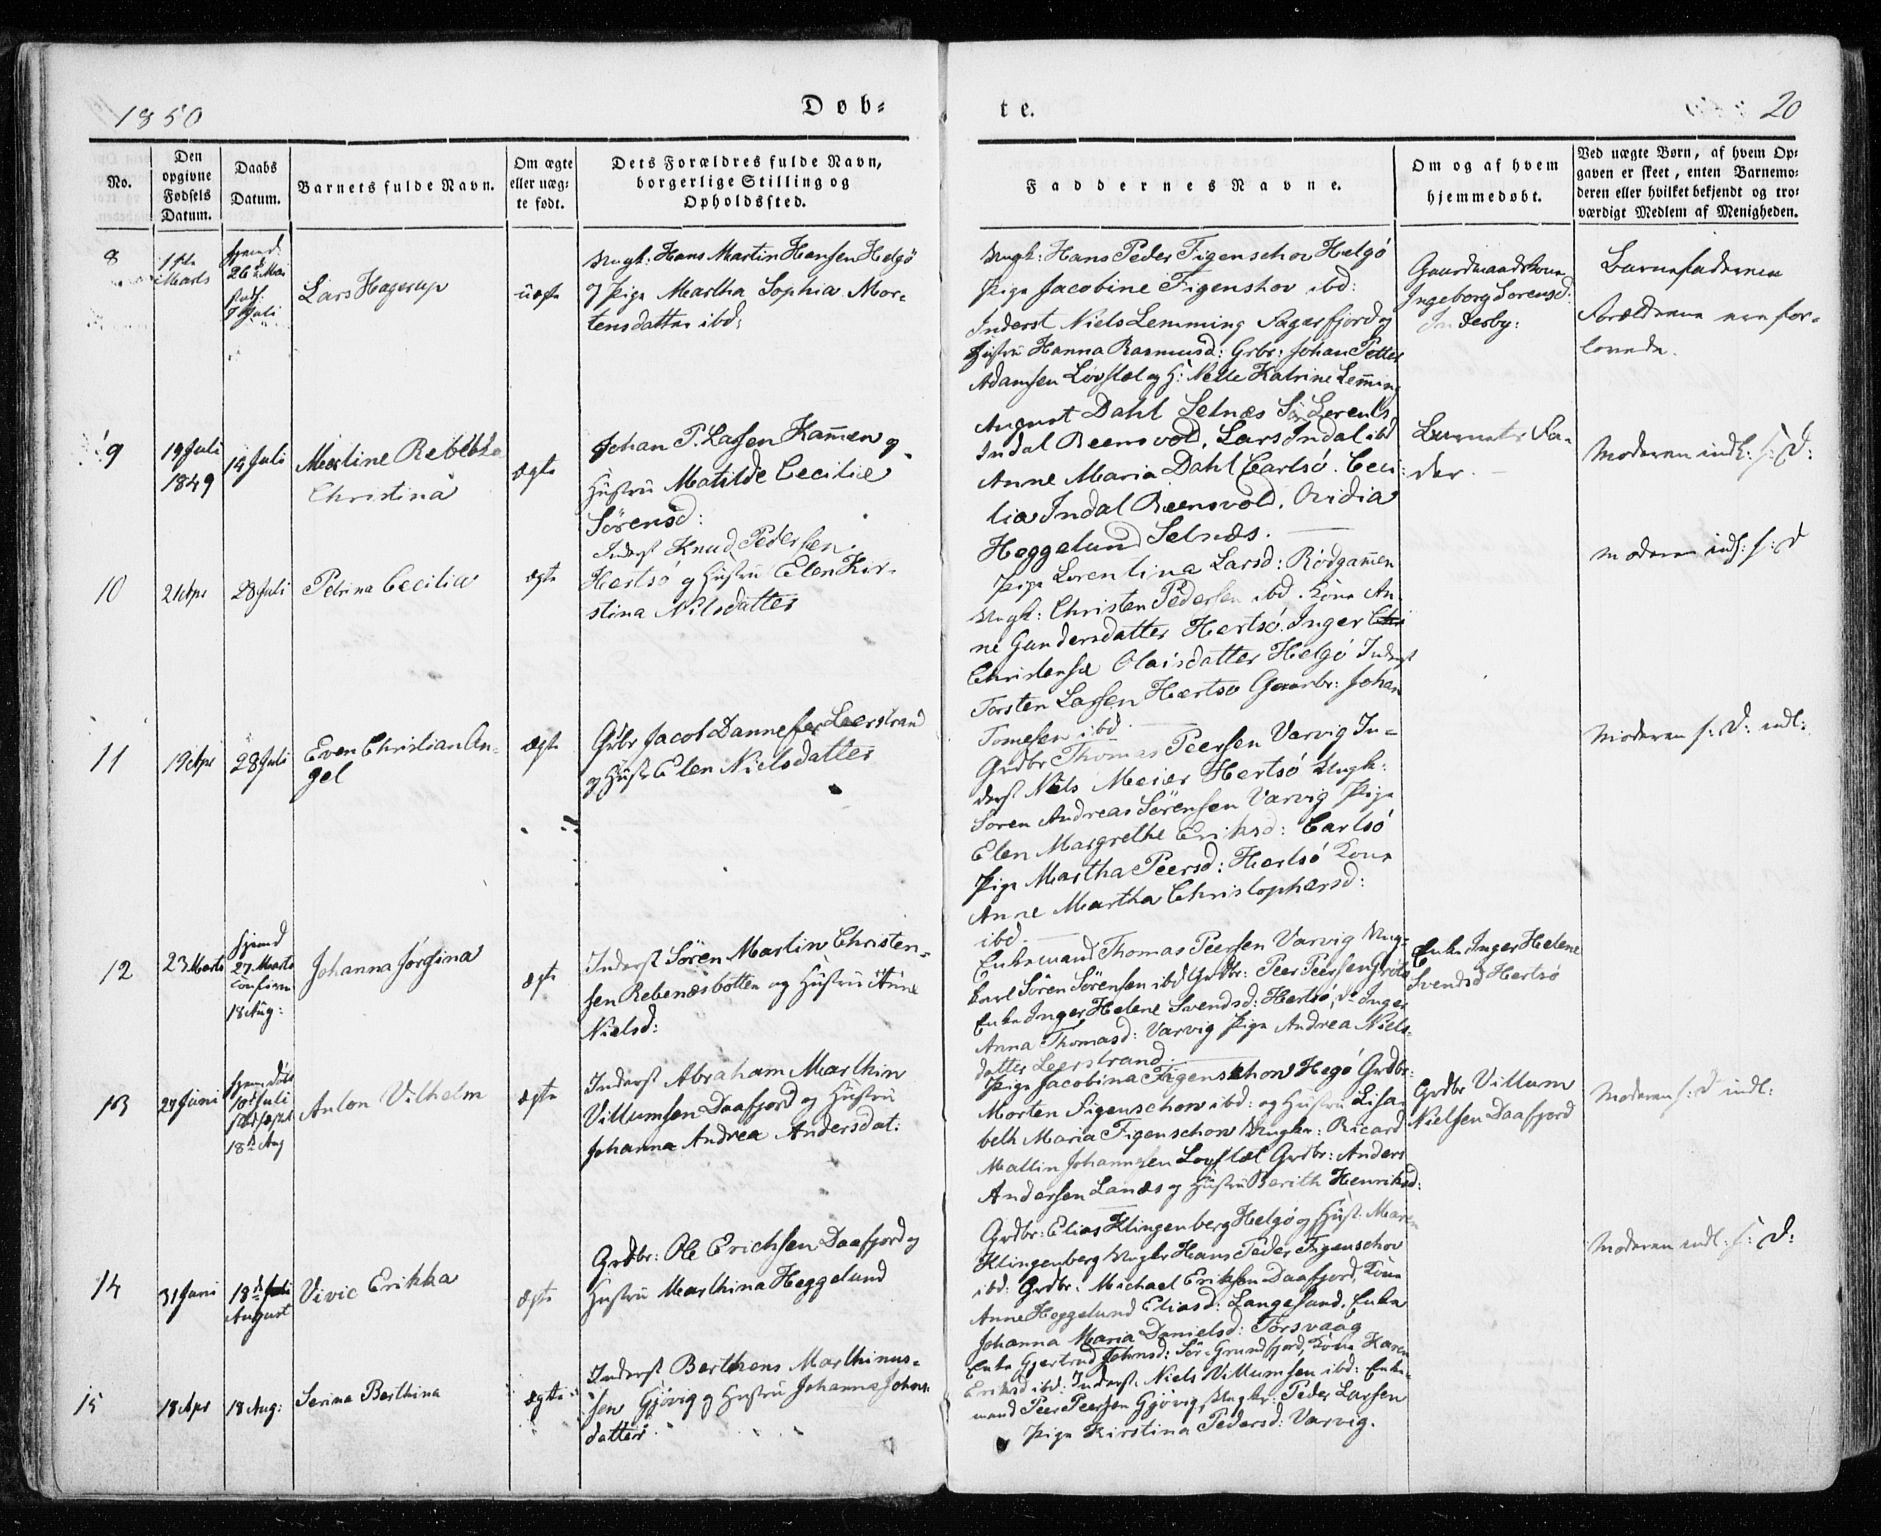 1850
Døb-
te.
20
No.
Den opgivne Fødsels Datum.
Daabs Datum.
Barnets fulde Navn.
Om ægte eller uægte født.
Dets Forældres fulde Navn, borgerlige Stilling og Opholdssted.
Faddernes Navne.
Om og af hvem hjemmedøbt.
Ved uægte Børn, af hvem Opgaven er skeet, enten Barnemoderen eller hvilket bekjendt og troværdigt Medlem af Menigheden.
8
1ste
Marts
26 Mai
7 Juli
Lars Hagerup
uægte
Ungk: Hans Martin Hansen Helgö
Pige Martha Sophia Mor-
tensdatter ibd:
Ungk: Hans Peder Figenschov Helgö
Pige Jacobine Figenshov ibd:
Inderst Niels Lemming Sagerfjord og
Hustru Hanna Rasmusd: Grbr: Johan Petter
Adamsen Lövstæl og H: Nelle Katrine Leming
Gaardmandskone
Ingeborg Sorensd:
Inderby:
Barnefaderen
Forældrene ere for-
lovede.
9
19 Juli
1849
14 Juli
Martine Rebekka
Christina
ægte
Johan P. Lassen Kamen og
Hustru Matilde Cecilie
Sörensd:
August Dahl Selnæs Lerents
Indal Reensvold, Lars Indal ibd
Anne Maria Dahl Carlsö. Ceci-
lia Indal Reensvold. Ovidia
Heggelund Selnæs.
Barnets Fa-
der.
Moderen indl: s: D:
10
2 Apr
28 Juli
Petrina Cecilia
ægte
Inderst Knud Pedersen
Hertsö og Hustru Elen Kir-
stina Nilsdatter
Pige Lorentina Larsd: Rödgamen
Ungk: Christen Pedersen ibd. Kone An-
ne Gundersdatter Hertsö. Inger
Christense Olaisdatter Helgö Inderst
Torsten Lassen Hertsö Gaardbr: Johan
Tomesen ibd
Moderen indl: s: D
11
1 Apr
28 Juli
Even Christian An-
gel
ægte
Grbr Jacob Dannefer Leerstrand
og Hustr Elen Nielsdatter
Grdbr Thomas Peersen Varvig In-
derst Niels Meier Hertsö Ungk:
Soren Andreas Sörensen Varvig Pige
Elen Margrethe Eriksd: Carlsö
Pige Martha Peersd: Hertsö Kone
Anne Martha Christophersd:
ibd.
Moderen s: D: indl:
12
23 Marts
hjemd
27 Marts
Confirm
18 Aug:
Johanna Jörgina
ægte
Inderst Sören Martin Christen-
sen Rebenæsbotten og Hustru Anne
Nielsd:
Enkemand Thomas Peersen Varvig Ung-
karl Sören Sörensen ibd Grdbr: Peer Peersen
Enke Inger Helene Svendsd: Hertsö, do Inger
Anna Thomasd: Varvig Pige Andrea Niels-
datter Leerstrand
Enke Inger Helene
Svendsd Hertsö
13
27 Juni
10 Juli
18de Aug
Anton Vilhelm
ægte
Inderst Abraham Marthin
Villumsen Daafjord og Hustru
Johanna Andrea Andersdat:
Pige Jacobina Figenschov Hegö Grdbr:
Morten Figenschov ibd: og Hustru Lisa-
beth Maria Figenschov Ungkr: Ricard
Mallin Johannsen Lovstæl Grdbr: Anders
Andersen Lanæs og Hustru Berith Henriksd:
Grdbr Villum
Nielsen Daafjord
Moderen s: D indl:
14
31 Juni
18de
August
Vivic Erikka
ægte
Grdbr: Ole Erichsen Daafjord og
Hustru Marthina Heggelund
Grdbr: Elias Klingenberg Helgö og Hust: Maren
Klingenberg Ungkr Hans Peder Figenschov
ibd: Grdbr: Michael Eriksen Daafjord, Kone
Anne Heggelund Eliasd: Langesund. Enke
Johanna Maria Danielsd: Torsvaag
Moderen indl: s: D:
15
18 Apr
18 Aug:
Serina Berthina
ægte
Inderst Berthens Marthinus-
sen Gjövig og Hustru Johanna Johns-
datter
Enke Gjertrud Johnsd: Sör-Grundfjord, Kone Karen
Eriksd ibd: Inderst Niels Villumsen ibd: Enke-
mand Peer Peersen Gjövig, Ungkr: Peder Larsen
Pige Kirstina Pedersd: Varvig.